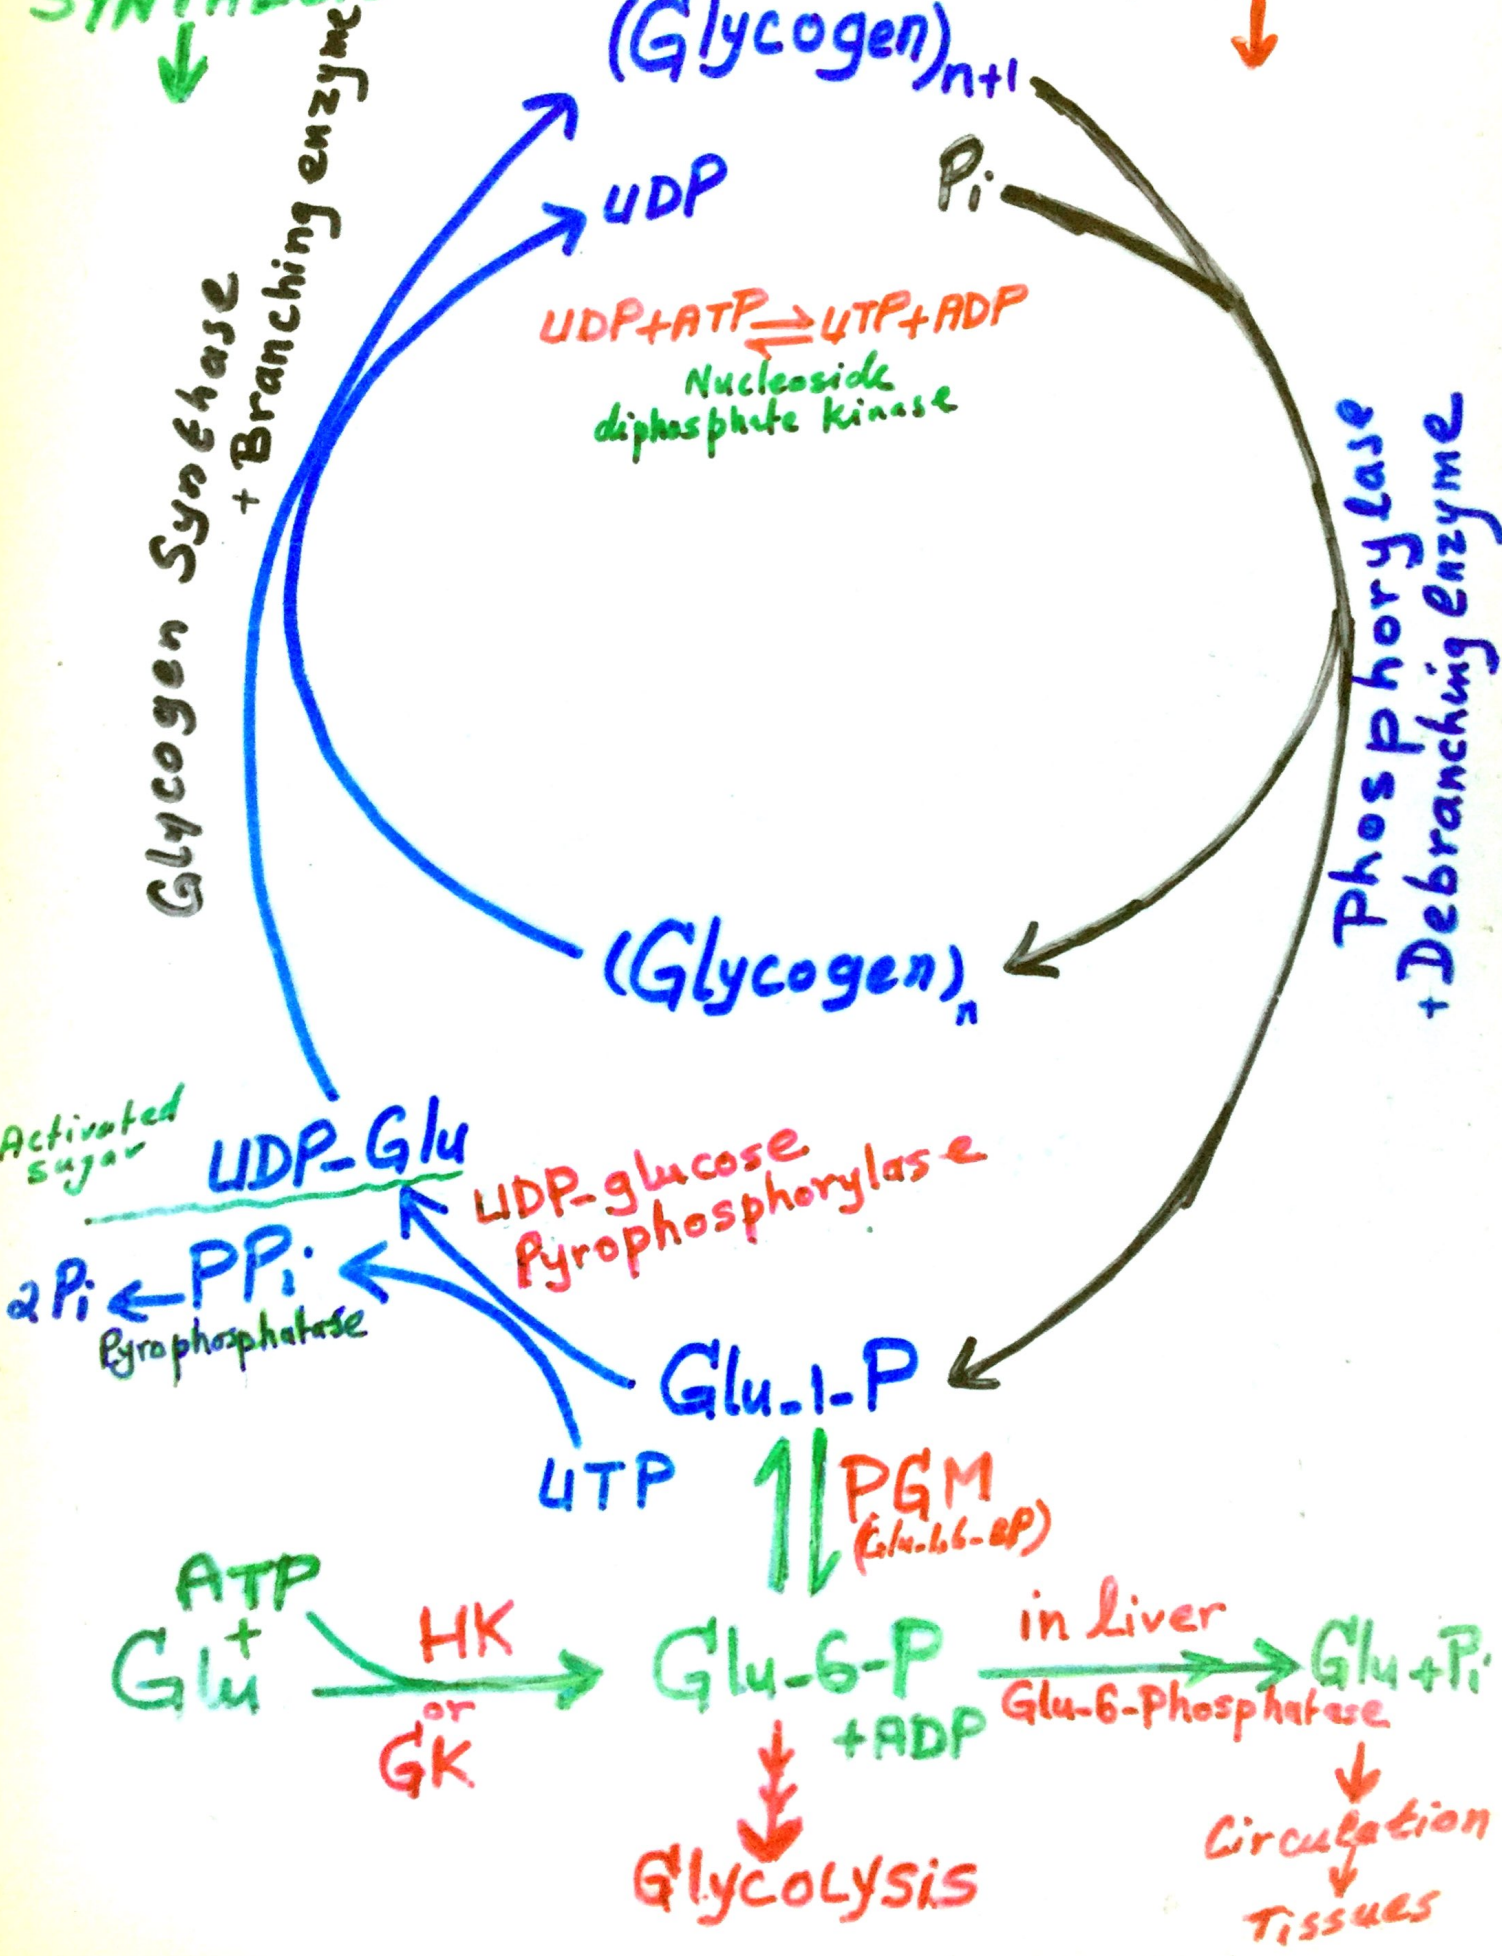 (Glycogen)n+1
Glycogen Synthase
+ Branching enzyme
UDP
Pi
UDP+ATP⇌UTP+ADP
Nucleoside
diphosphate kinase
Phosphorylase
+Debranching enzyme
(Glycogen)n
Activated
sugar
UDP-Glu
UDP-glucose
Pyrophosphorylase
2Pi ← PPi
Pyrophosphatase
Glu-1-P
UTP
PGM
ATP
+
Glu
HK
or
GK
Glu-6-P
+ADP
in liver
Glu-6-Phosphatase
Glu+Pi
Glycolysis
Circulation
Tissues